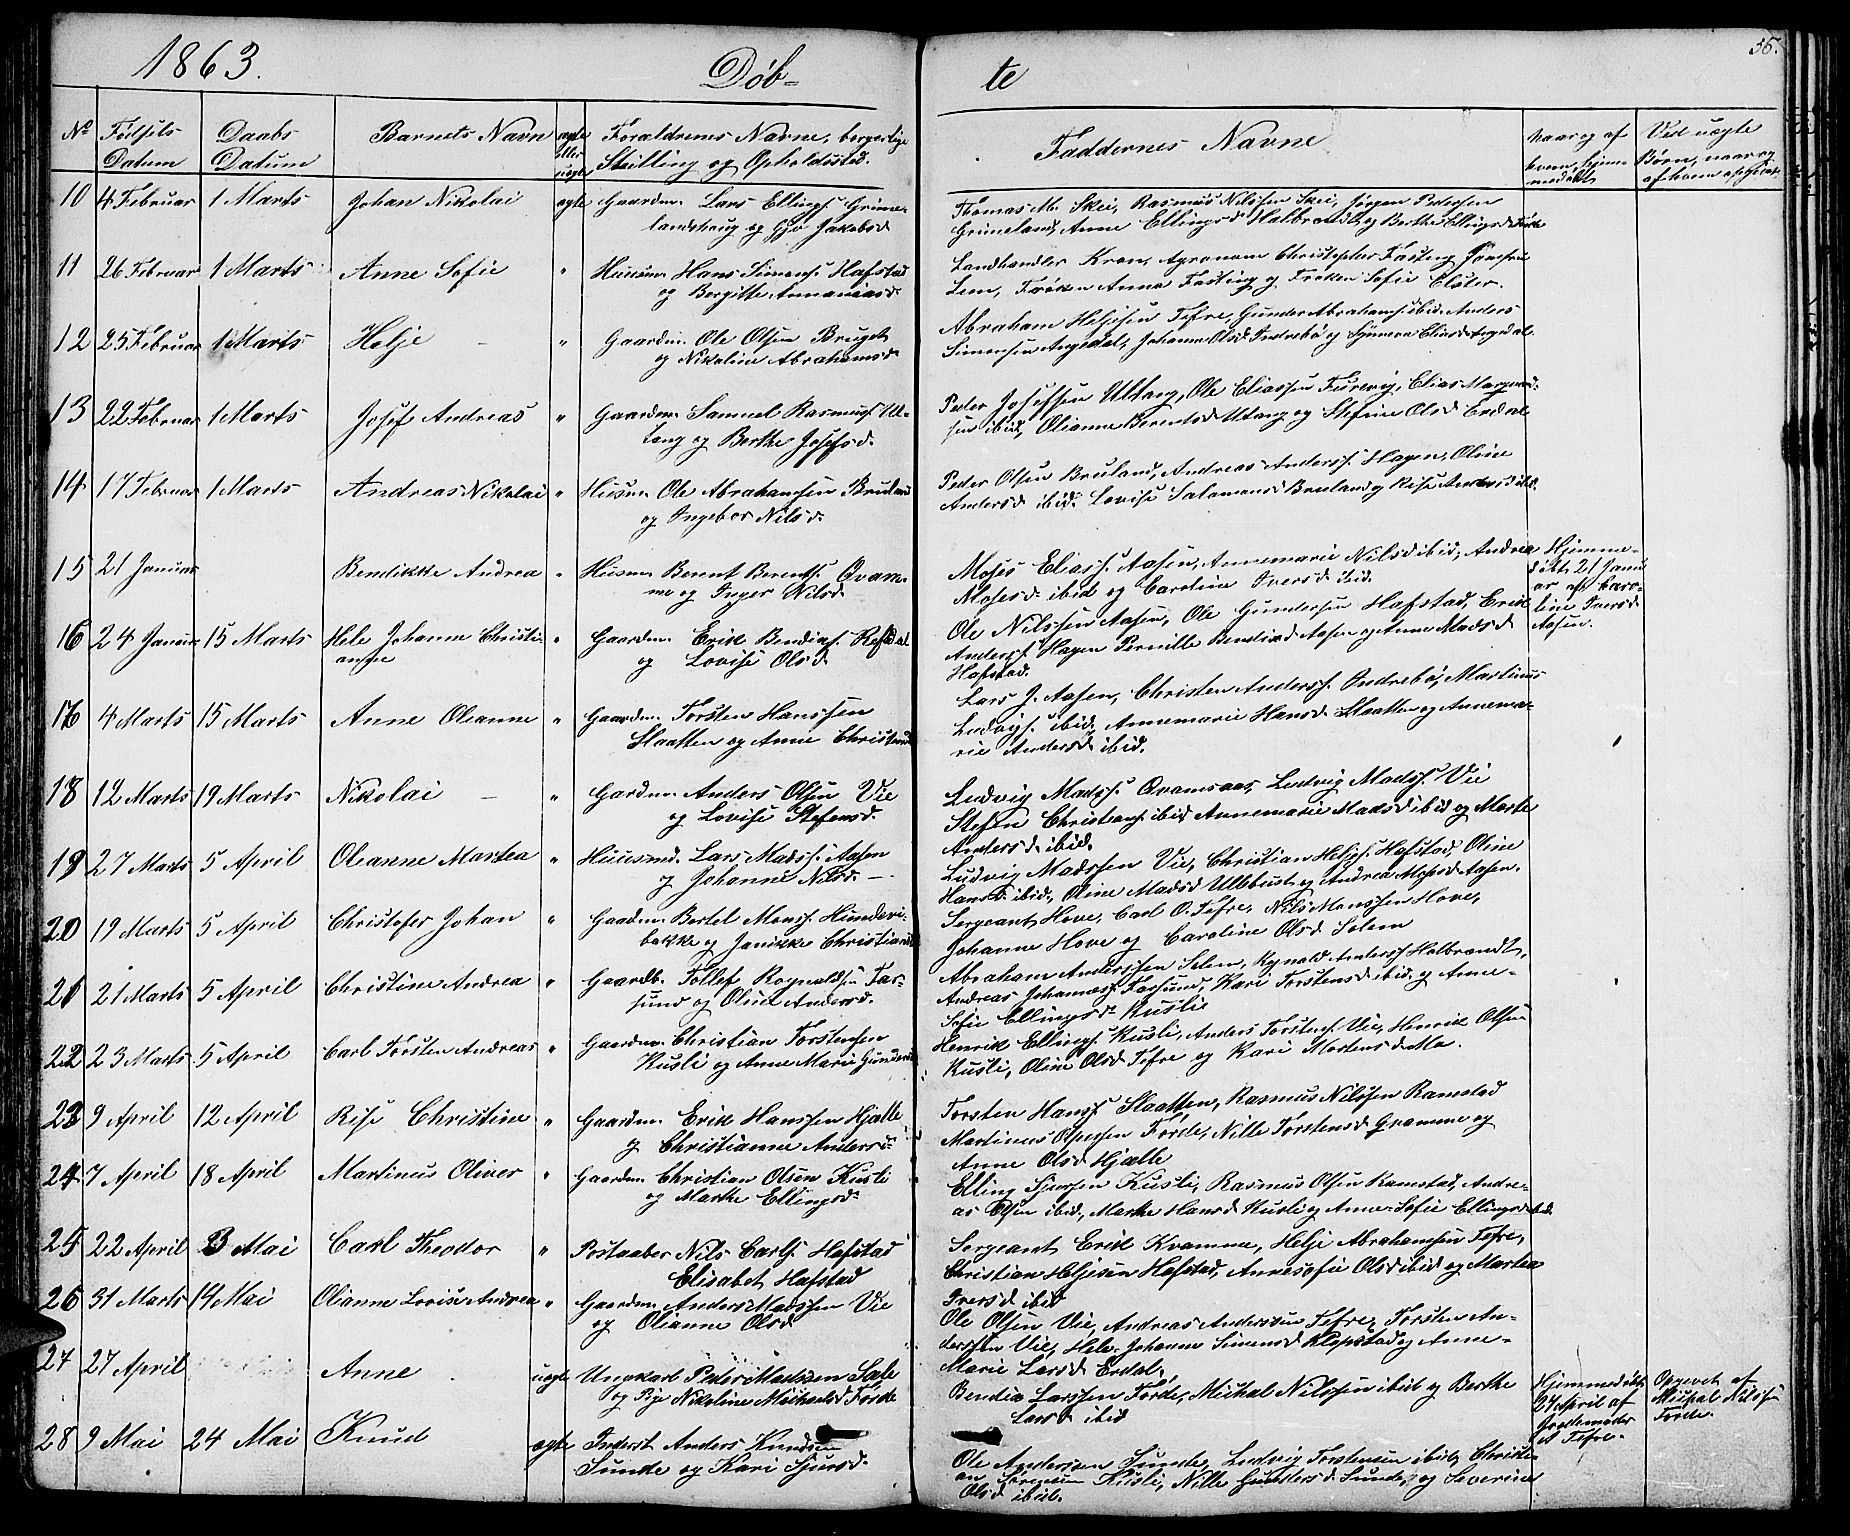 1863.
Døb-
te
56.
No
Fødsels Datum
Daabs Datum
Barnets Navn
ægte eller uægte
Forældrenes Navne, borgerlige Stilling og Opholdssted.
Faddernes Navne
Naar og af hvem hjemmedøbt
Ved uægte Børn, naar og af hvem
10 4 Februar 1 Marts Johan Nikolai ægte Gaardm. Lars Ellings. Grime-
landshaug og Gjo Jakobsd
Thomas M. Skei, Rasmus Nilssen Skei, Jørgen Pedersen
Grimeland, Anne Ellingsd Halbrendt og Berthe Ellingsd
11 26 Februar 1 Marts Anne Sofie " Huusm. Hans Simons. Hafstad
og Bergitte Annaniasd.
Landhandler Kron, Agronom Christopher Fasting
Lem, Frøken Anna Fasting og Frøken Sofie Elster.
12 25 Februar 1 Marts Helje - " Gaardm. Ole Olsen Bruget
og Nikoline Abrahamsd
Abraham Heljesen Tefre, Gunder Abrahams. ibid. Anders
Simonsen Angedal, Johanne Olsd Indrebø og Synneva Eliasd Angedal
13 22 Februar 1 Marts Josef Andreas " Gaardm. Samuel Rasmus. Ul-
tang og Berthe Josefsd.
Peder Josefsen Ultang, Ole Eliassen Furevig, Elias
sen ibid, Olianne Berentsd Ultang og Stefine Olsd Erdal
14 17 Februar 1 Marts Andreas Nikolai " Huusm. Ole Abrahamsen Bruland
og Ingebor Nilsd.
Peder Olsen Bruland, Andreas Anderss. Hagen, Oline
Andersd ibid. Lovise Salamonsd Bruland og Rise Andersd ibid.
15 21 Januar Bendikke Andrea " Husm. Berent Berents. Qvam-
me og Inger Nilsd.
Moses Elias. Aasen, Annemarie Nilsd ibid, Andrea
Mosesd. ibid og Caroline Iversd ibid.
Hjemme-
døbt 21 Janu
ar af Caro-
line Iversd
Aasen.
16 24 Januar 15 Marts Hele Johanne Christi-
anne " Gaardm. Erik Bendix. Refsdal
og Lovise Olsd
Ole Nilssen Aasen, Ole Gundersen Hafstad, Erik
Anderss. Hagen Pernille Bendixd Aasen og Anne Madsd
Hafstad.
17 4 Marts 15 Marts Anne Olianne " Gaardm. Torsten Hanssen
Slaatten og Anne Christensd
Lars J. Aasen, Christen Anderss. Indrebø, Martinus
Ludvigs. ibid, Annemarie Hansd. Slaatten og Annema-
rie Andersd ibid.
18 12 Marts 19 Marts Nikolai - " Gardm. Anders Olsen Vie
og Lovise Stefensd.
Ludvig Madss. Qvamsaas, Ludvig Madss. Vie
Stefen Christians. ibid Annemarie Madsd ibid og Marte
Andersd. ibid.
19 27 Marts 5 April Olianne Martea " Huusmd. Lars Madss. Aasen
og Johanne Nilsd. -
Ludvig Madssen Vie, Christian Heljes. Hafstad, Oline
Hansd ibid, Oline Madsd Ullebust og Andrea Mosesd Aasen.
20 19 Marts 5 April Christofer Johan " Gaadm. Bertel Monss. Hundvi-
bakke og Janikke Christiansd
Sergeant Hove, Carl O. Tefre, Nils Monssen Hove,
Johanne Hove og Caroline Olsd Solem
21 21 Marts 5 April Christine Andrea " Gaardb. Tollef Rognaldsen Far-
sund og Oline Andersd.
Abraham Anderssen Solem, Rognald Anders. Halbrendt,
Andreas Johannes. Farsund, Kari Torstensd ibid. og Anne-
Sofie Ellingsd. Kusli
22 23 Marts 5 April Carl Torsten Andreas " Gaardm. Christian Torstensen
Kusli og Anne Marie Gundersd
Henrik Ellings. Kusli, Anders Torstens. Vie, Henrik Olsen
Kusli, Oline Olsd Tefre og Kari Mortensd. Mo.
23 9 April 12 April Rise Christine " Gaardm. Erik Hanssen Hjelle
og Christianne Andersd.
Torsten Hanss. Slaatten, Rasmus Nilssen Ramstad
Martinus Olsen Førde, Nille Torstensd. Qvamme og
Anne Olsd Hjelle
24 7 April 18 April Martinus Oliver " Gaardm. Christian Olsen Kusli
og Marthe Ellingsd.
Elling Sjursen Kusli, Rasmus Olsen Ramstad, Andre-
as Olsen ibid, Marthe Hansd Kusli og Anne-Sofie Ellingsd ibid
25 22 April 3 Mai Carl Theodor " Postaaber Nils Carls. Hafstad
Elisabet Hafstad
Sergeant Erik Kvamme, Helje Abrahamsen Tefre,
Christian Heljesen Hafstad, Annesofie Olsd ibid og Martea
Iversd ibid
26 31 Marts 14 Mai Olianne Lovise Andrea " Gaardm. Anders Madssen Vie
og Olianne Olsd
Ole Olsen Vie, Andreas Andersen Tefre, Torsten An-
derssen Vie, Hele-Johanne Simensd Klepstad og Anne-
Marie Larsd Erdal.
27 27 April Anne uægte Ungkarl Peder Madssen Sæle
og Pige Nikoline Michaelsd Førde
Bendix Larssen Førde, Mickal Nilssen ibid og Berthe
Larsd ibid
Hjemmedøbt
27 April af
Jordemoder
A Tefre.
Opgivet af
Mickal Nilssen
Førde.
28 9 Mai 24 Mai Knud ægte Inderst Anders Knudsen
Sunde og Kari Sjursd.
Ole Anderssen Sunde, Ludvig Torstensen ibid, Christi-
an Sørensen Kusli, Nille Gundersd. Sunde, og Severine
Olsd ibid.